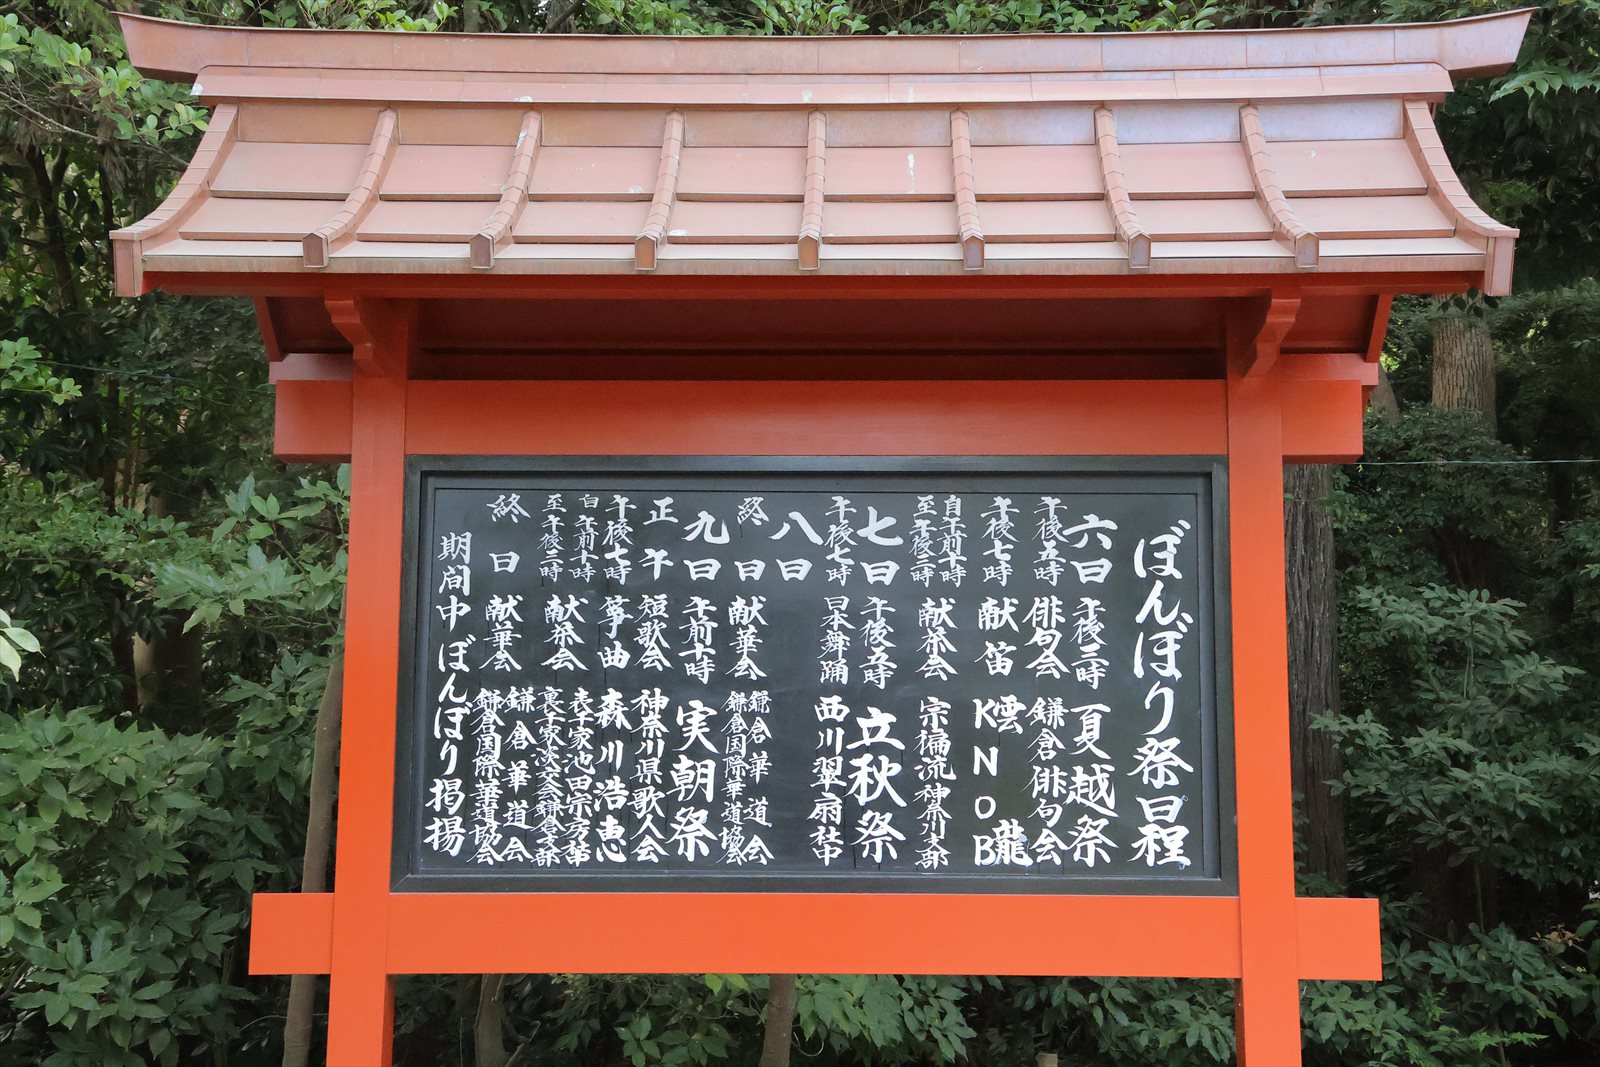 ぼんぼり祭日程
六日 午後三時 夏越祭
午後五時 俳句会 鎌倉俳句会
午後七時 献笛 雲龍
KNOB
自午前十時
至午後三時 献茶会 宗徧流神奈川支部
七日 午後五時 立秋祭
午後七時 日本舞踊 西川翠扇社中
八日
終日 献華会 鎌倉華道会
鎌倉国際華道協会
九日 午前十時 実朝祭
正午 短歌会 神奈川県歌人会
午後七時 箏曲 森川浩恵
自午前十時
至午後三時 献茶会 表千家池田宗房社中
裏千家淡交会鎌倉支部
終日 献華会 鎌倉華道会
鎌倉国際華道協会
期間中ぼんぼり掲揚